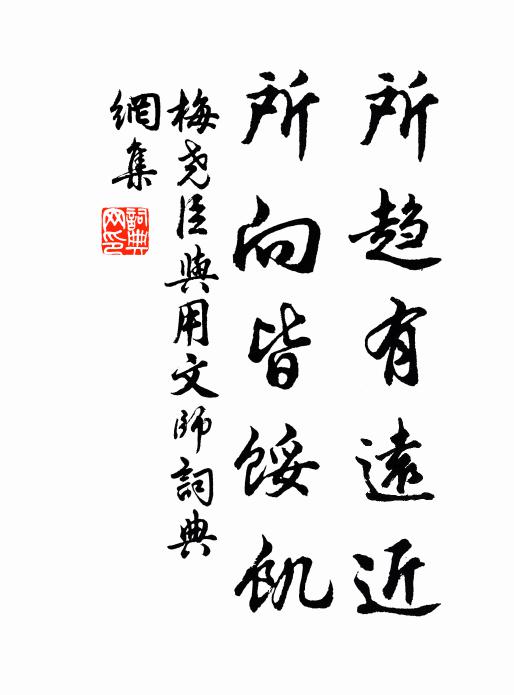 所趋有遠近
所向皆餒飢
梅尧臣與用文師詞典
網集
詞典
网印